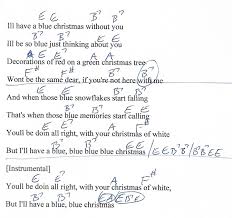 E E B⁷ B⁷
Ill have a blue christmas without you
B⁷ B⁷ E E
Ill be so blue just thinking about you
E E⁷ A
Decorations of red on a green christmas tree
F# F# B⁷ B⁷
Wont be the same dear, if you're not here with me
E E B⁷ B⁷
And when those blue snowflakes start falling
B⁷ B⁷ E E
That's when those blue memories start calling
E E⁷ A F#
Youll be doin all right, with your christmas of white
B⁷ B⁷
But I'll have a blue, blue blue blue christmas /E E B⁷ B⁷/ B⁷ B⁷ E E
[Instrumental]
E E⁷ A F#
Youll be doin all right, with your christmas of white,
B⁷ B⁷
But I'll have a blue, blue christmas